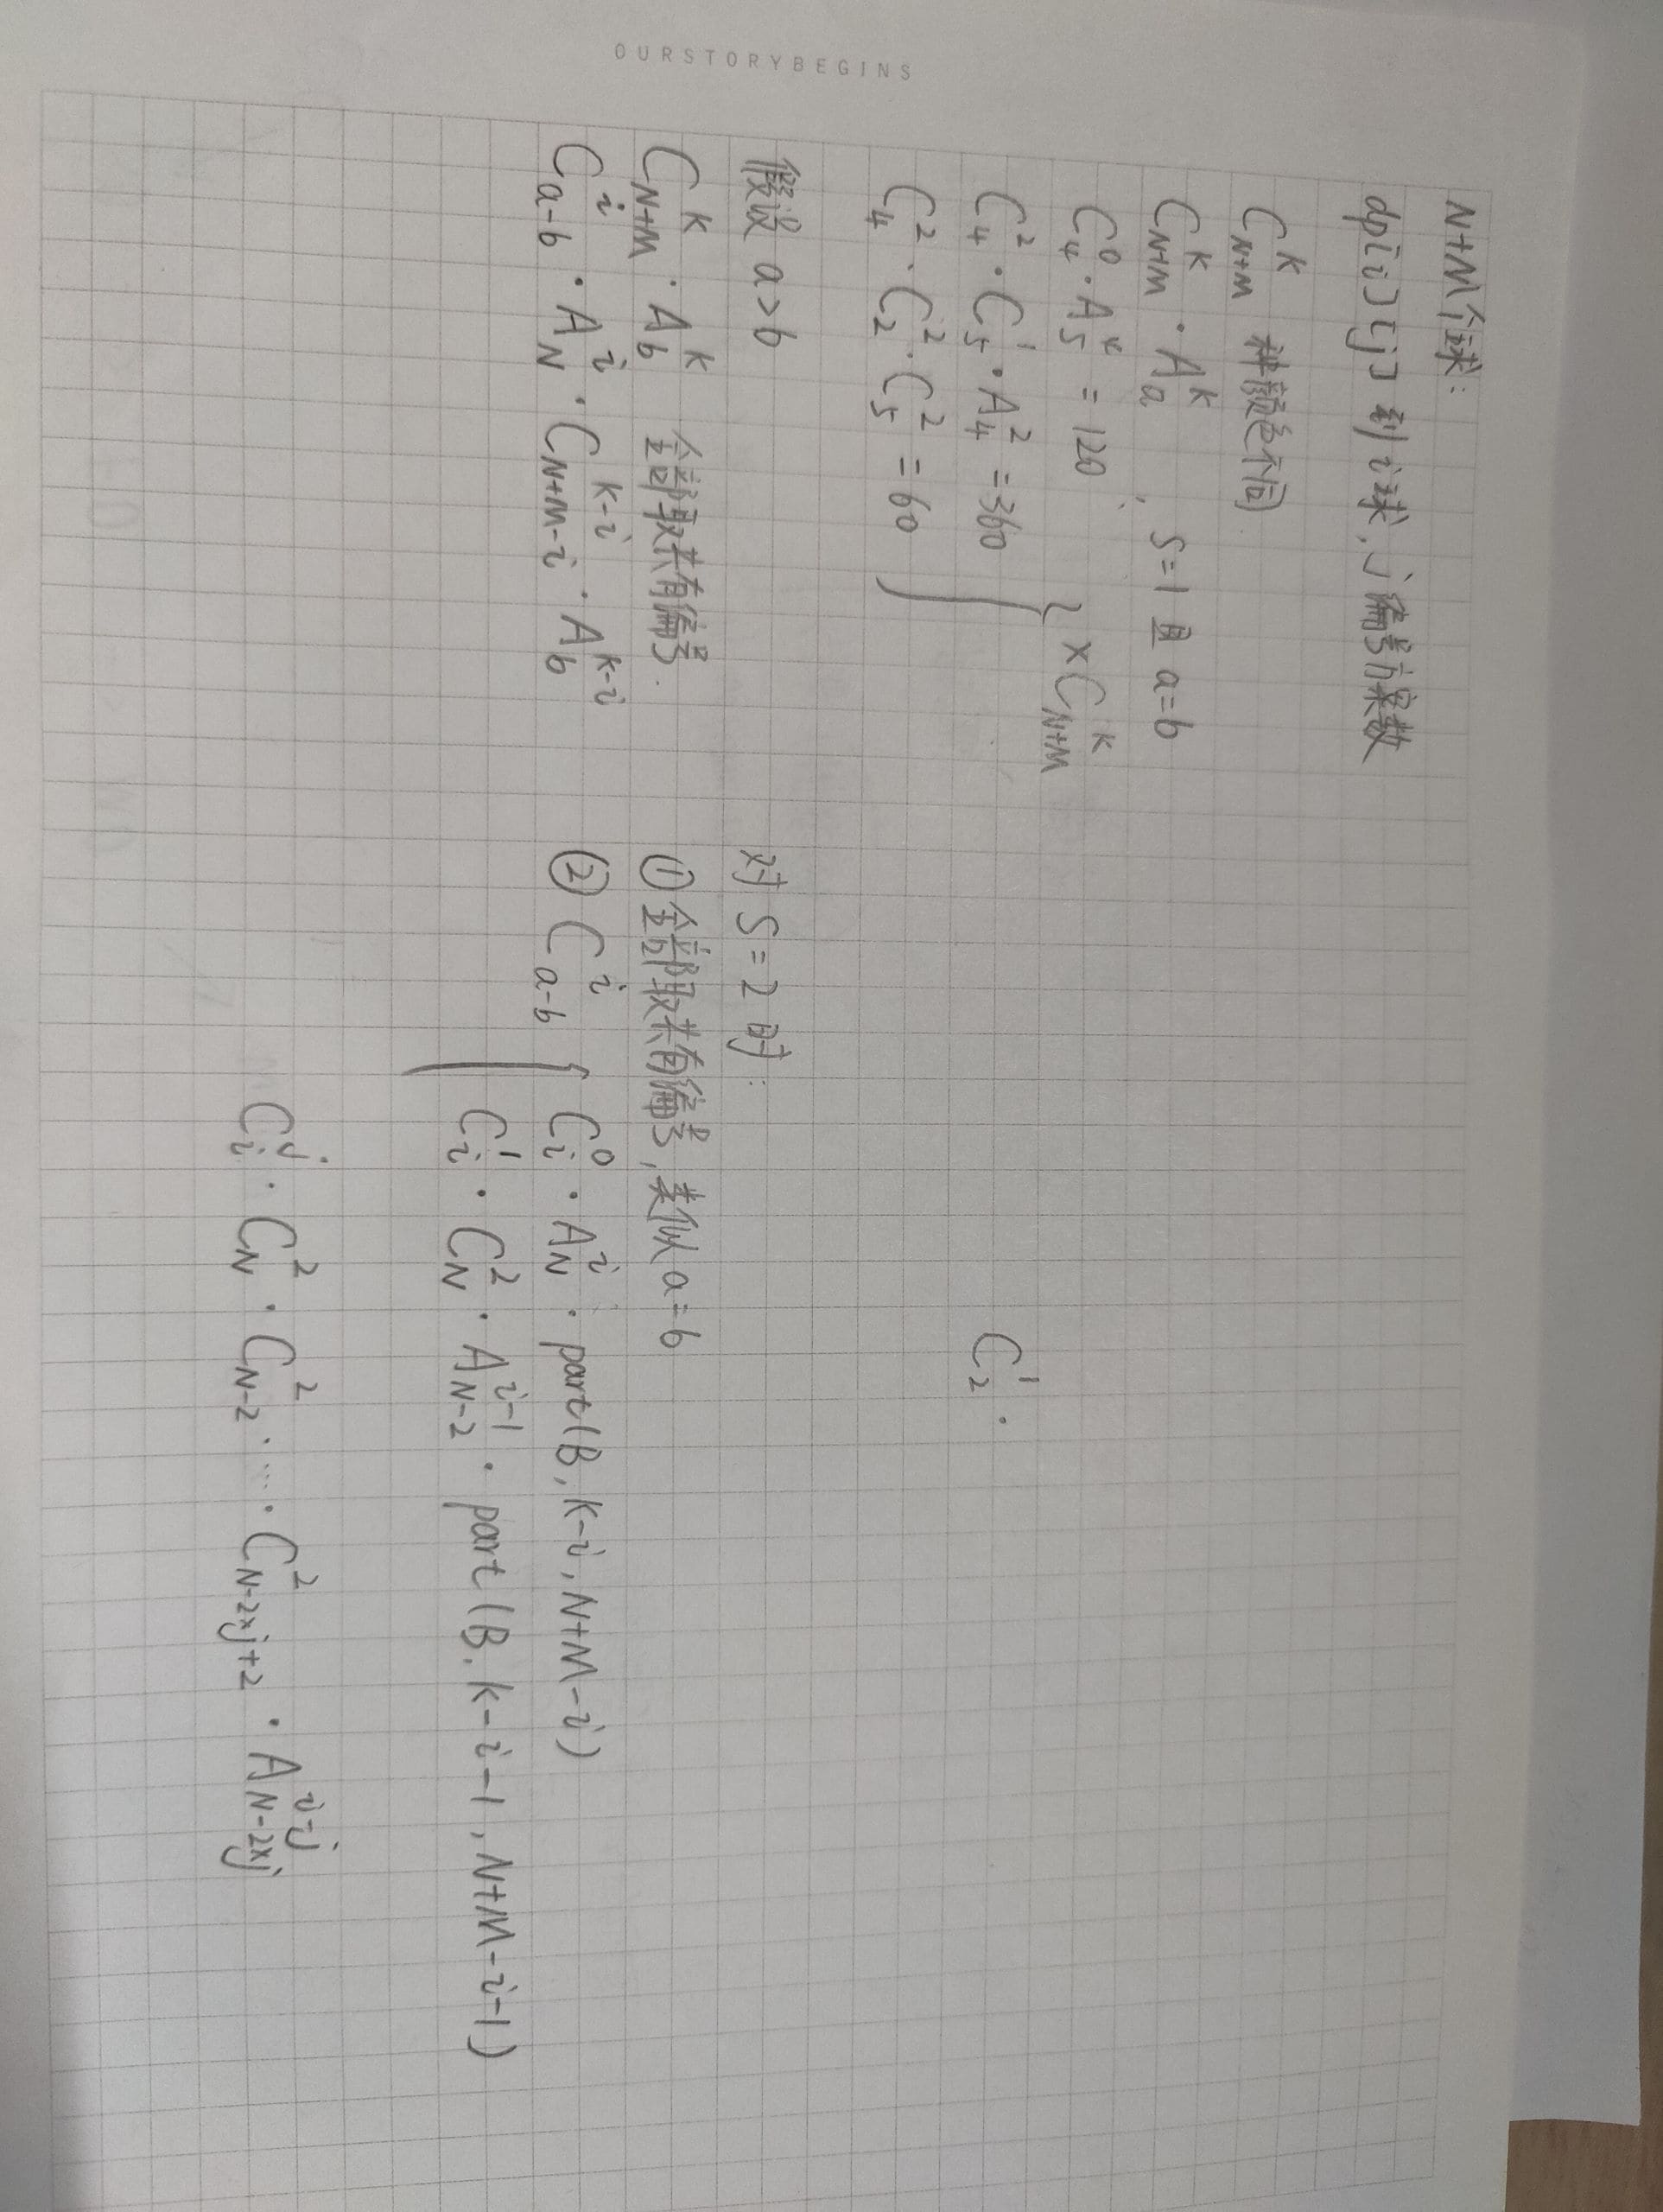 N+M个球:
dp[i][j] 到i球,j编号方案数
C_{N+M}^{K} 种颜色不同.
C_{N+M}^{K} · A_{a}^{K} , S=1 且 a=b
C_{4}^{0} · A_{5}^{4} = 120
C_{4}^{2} · C_{5}^{1} · A_{4}^{2} = 360
C_{4}^{2} · C_{2}^{2} · C_{5}^{2} = 60
} × C_{N+M}^{K}
C_{2}^{1} ·
假设 a>b
C_{N+M}^{K} · A_{b}^{K} 全部取共有编号.
C_{a-b}^{i} · A_{N}^{i} · C_{N+M-i}^{K-i} · A_{b}^{K-i}
对 S=2 时:
① 全部取共有编号,类似a=b
② C_{a-b}^{i} { C_{i}^{0} · A_{N}^{i} · part(B, K-i, N+M-i)
C_{i}^{1} · C_{N}^{2} · A_{N-2}^{i-1} · part(B, K-i-1, N+M-i-1)
C_{i}^{j} · C_{N}^{2} · C_{N-2}^{2} · ··· · C_{N-2×j+2}^{2} · A_{N-2×j}^{i-j}
OURSTORYBEGINS